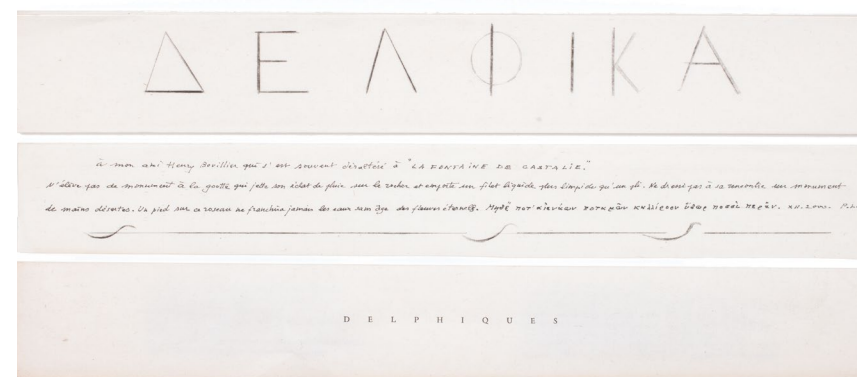 ΔΕΛΦΙΚΑ
à mon ami Henry Bouillier qui s'est souvent désaltéré à "LA FONTAINE DE CASTALIE."
N'élève pas de monument à la goutte qui jette son éclat de pluie sur le rocher et emporte un filet liquide plus limpide qu'un pli. Ne dresse pas à sa rencontre un monument
de mains désertes. Un pied sur ce roseau ne franchira jamais les eaux sans âge des fleuves éternels. ποταμῶν ὕδωρ ποσσὶ περᾶν.
DELPHIQUES